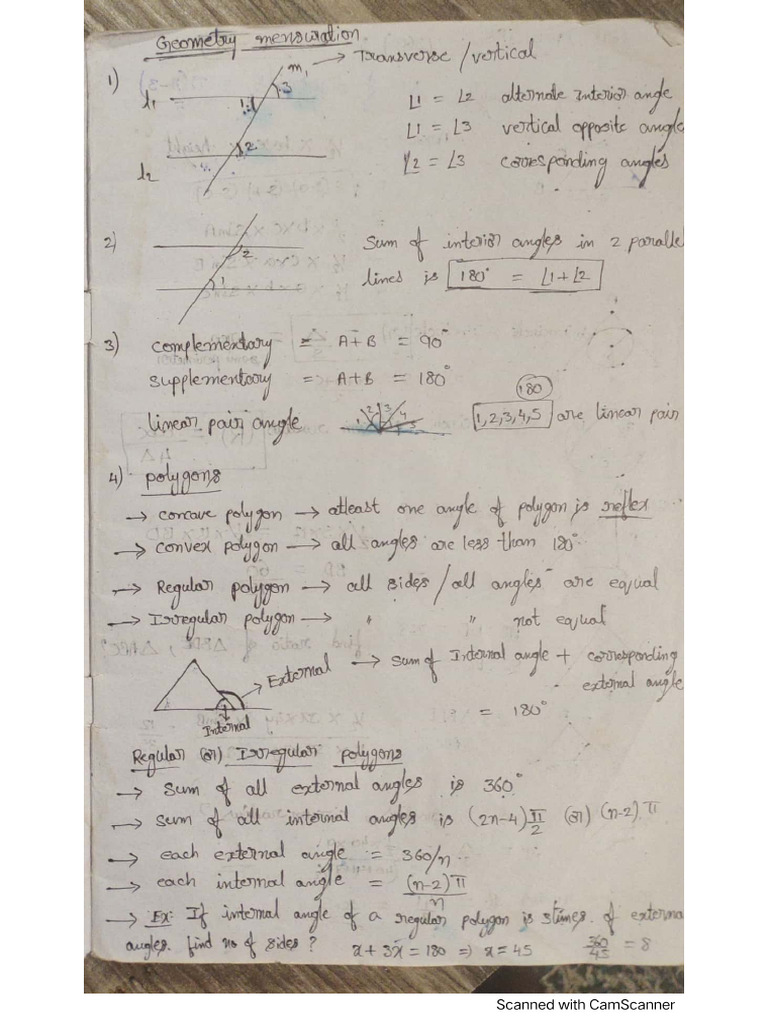 Geometry mensuration
1) m, → Transverse / vertical
l1 1 3 ∠1 = ∠2 alternate interior angle
∠1 = ∠3 vertical opposite angle
l2 2 ∠2 = ∠3 corresponding angles
2) 2 1 Sum of interior angles in 2 parallel
lines is 180° = ∠1+∠2
3) complementary = A+B = 90°
supplementary = A+B = 180°
180
linear pair angle 1 2 3 4 5 1,2,3,4,5 are linear pair
4) polygons
→ concave polygon → atleast one angle of polygon is reflex
→ convex polygon → all angles are less than 180°
→ Regular polygon → all sides/all angles are equal
→ Irregular polygon → " " not equal
External → sum of Internal angle + corresponding
external angle
Internal = 180°
Regular (or) Irregular polygons
→ sum of all external angles is 360°
→ sum of all internal angles is (2n-4)π/2 (or) (n-2)π
→ each external angle = 360/n
→ each internal angle = (n-2)π/n
→ Ex: If internal angle of a regular polygon is 3times of externa
angles. find no of sides? x + 3x = 180 ⇒ x = 45 360/45 = 8
Scanned with CamScanner